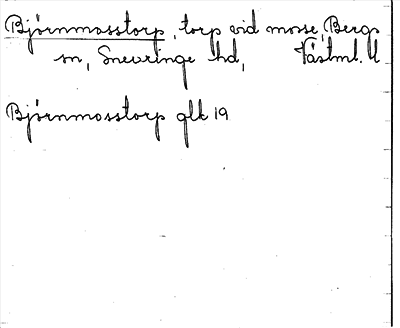 Björnmosstorp, torp vid mosse, Bergs
sn, Snevringe hd, Västml. ll
Björnmosstorp glk 19